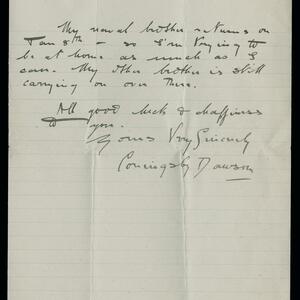 My naval brother returns on
Jan 8th – so I'm trying to
be at home as much as I
can. My other brother is still
carrying on over there.
All good luck & happiness
to you.
Yours Very Sincerely
Coningsby Dawson